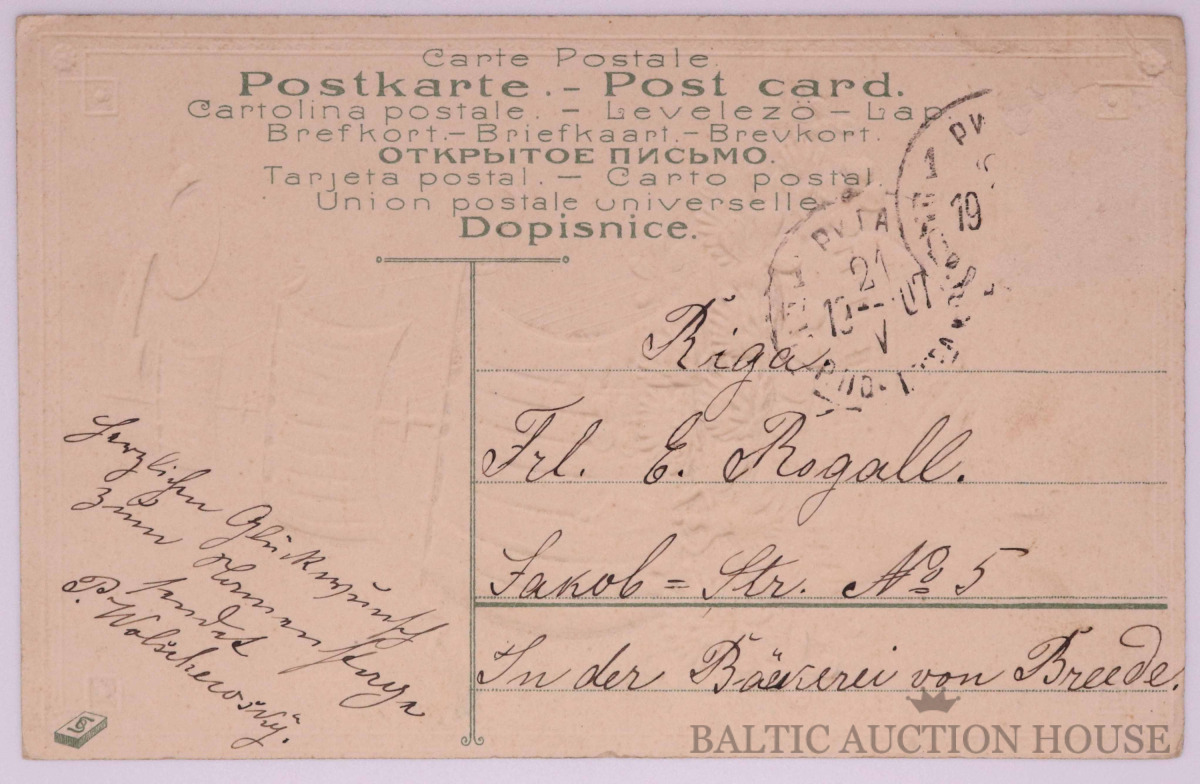 Carte Postale.
Postkarte. - Post card.
Cartolina postale. - Levelezö - Lap
Brefkort. - Briefkaart. - Brevkort.
ОТКРЫТОЕ ПИСЬМО.
Tarjeta postal. - Carto postal.
Union postale universelle
Dopisnice.
РИ
1
19
РИГА
1
21
19-- 07
V
Riga.
Frl. E. Rogall.
Jakob = Str. No 5
In der Bäckerei von Breede.
Herzlichen Glückwunsch
zum Namenstage
sendet
P. Wolschewsky.
BALTIC AUCTION HOUSE